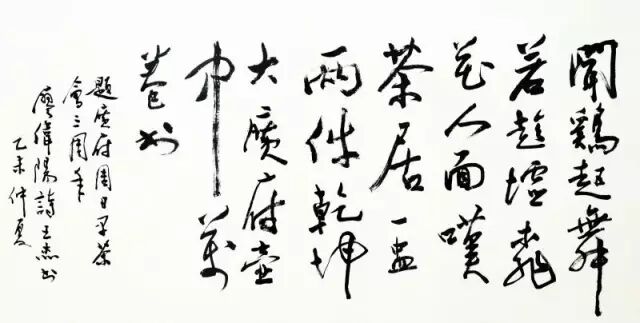 聞鷄起舞
若趁墟桃
花人面嘆
茶居一盅
兩件乾坤
大廣府壺
中萬
卷書
題廣府周日早茶
會三周年
廖偉陽詩王杰書
乙未仲夏